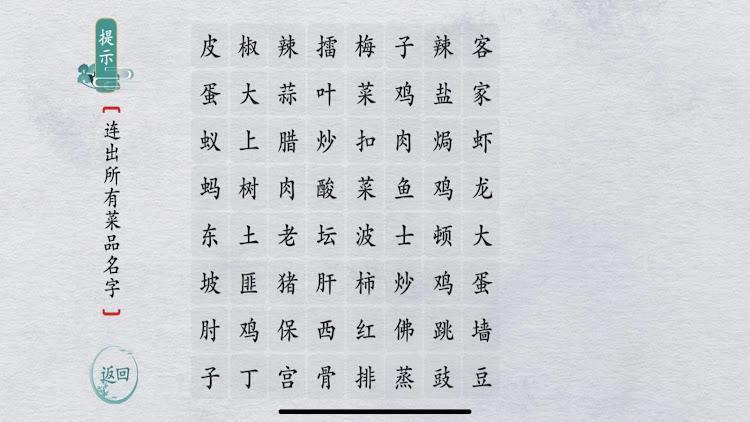 提示
【连出所有菜品名字】
返回
皮椒辣擂梅子辣客
蛋大蒜叶菜鸡盐家
蚁上腊炒扣肉焗虾
蚂树肉酸菜鱼鸡龙
东土老坛波士顿大
坡匪猪肝柿炒鸡蛋
肘鸡保西红佛跳墙
子丁宫骨排蒸豉豆